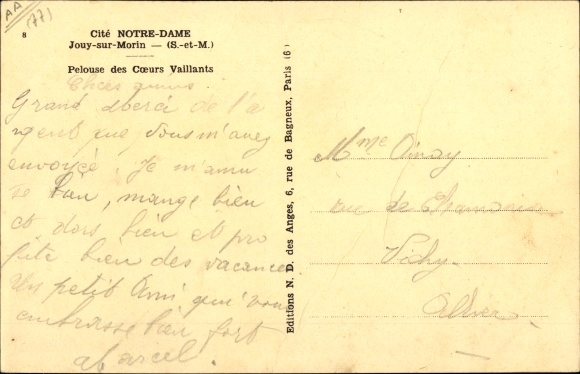 AA
(77)
8
Cité NOTRE-DAME
Jouy-sur-Morin — (S.-et-M.)
Pelouse des Cœurs Vaillants
Grand Merci de l'a
rgent que Vous m'avez
envoyée. Je m'amu
se bien, mange bien
et dors bien et pro
fite bien des vacances
Un petit Ami qui vous
embrasse bien fort
Marcel.
Editions N. D. des Anges, 6, rue de Bagneux, Paris (6)
Mme
rue de
Vichy
Allier